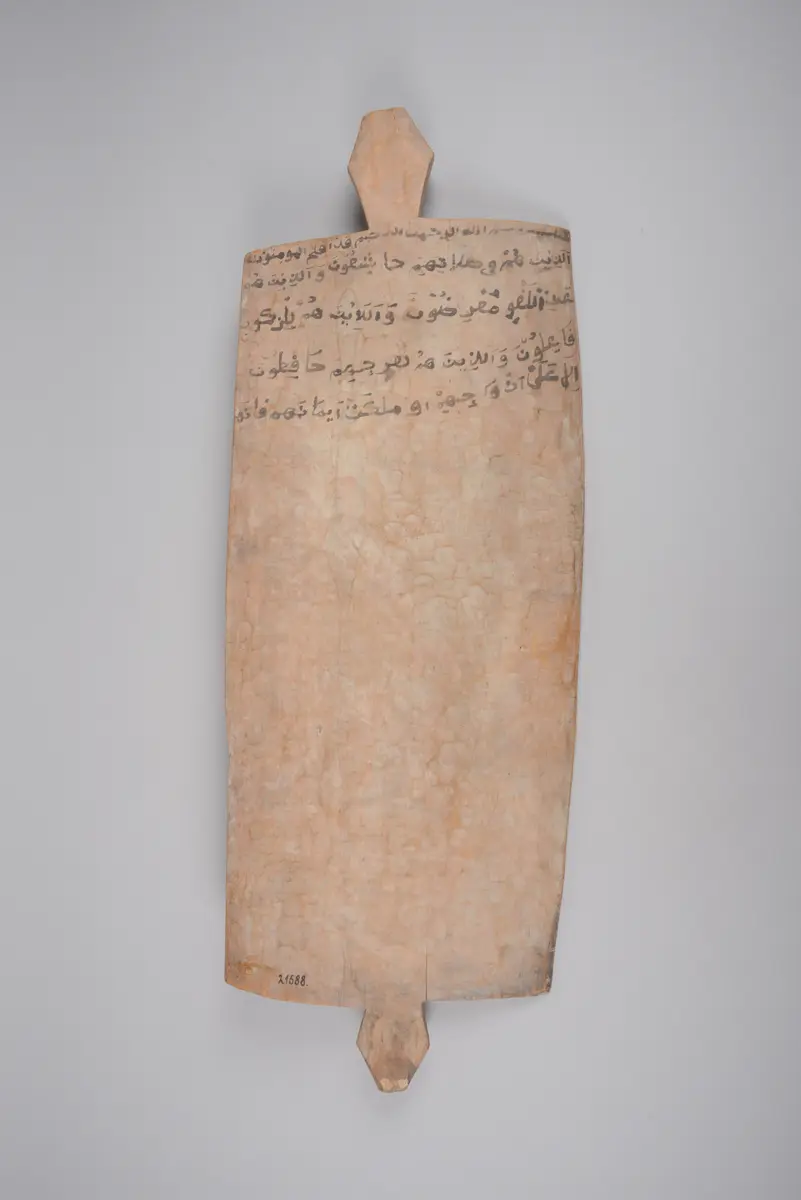 بسم الله الرحمن الرحيم قد افلح المومنون
الذين هم في صلاتهم خا شعون والذين هم
عن اللغو معرضون والذين هم للزكوة
فاعلون والذين هم لفروجهم حافظون
الا على ازواجهم او ملكت ايمانهم فانهم
21588.